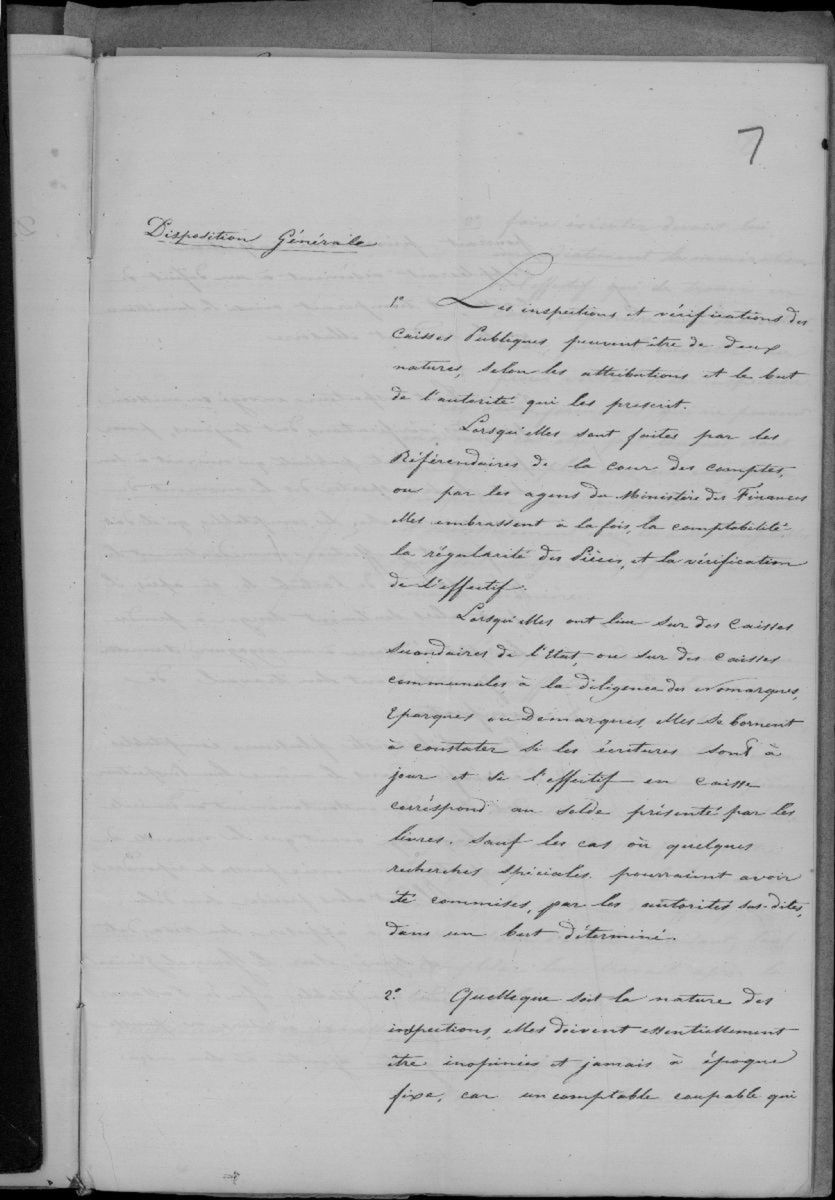 7
Disposition Générale
1.° Les inspections et vérifications des
Caisses Publiques, peuvent être de deux
natures, selon les attributions et le but
de l'autorité qui les prescrit.
Lorsqu'elles sont faites par les
Référendaires de la cour des comptes,
ou par les agens du Ministère des Finances
elles embrassent à la fois, la comptabilité
la régularité des Pièces, et la vérification
de l'effectif.
Lorsqu'elles ont lieu sur des Caisses
Secondaires de l'Etat, ou sur des caisses
communales à la diligence des Nomarques,
Eparques ou Démarques, elles se bornent
à constater si les écritures sont à
jour et si l'effectif en caisse
correspond au solde présenté par les
livres. Sauf les cas où quelques
recherches spéciales pourraient avoir
té commises, par les autorités sus-dites,
dans un but déterminé.
2.° Quelleque soit la nature des
inspections, elles doivent essentiellement
être inopinées et jamais à époque
fixe, car un comptable coupable qui